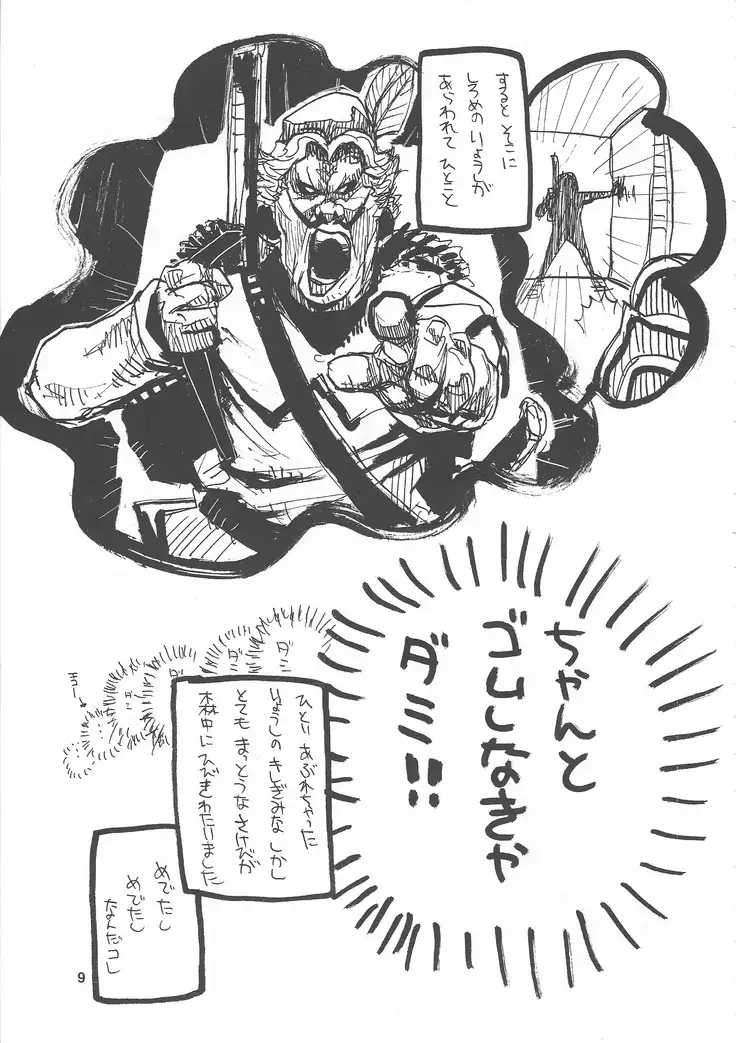 すると そこに
しろめの りょうしが
あらわれて ひとこと
ちゃんと
ゴムしなきゃ
ダミ!!
ダミ
ダミ
ダミ
ひとり あぶれちゃった
りょうしの きしぎみな しかし
とても まっとうな さけびが
森中に ひびきわたりました
めでたし
めでたし
なんだコレ
9